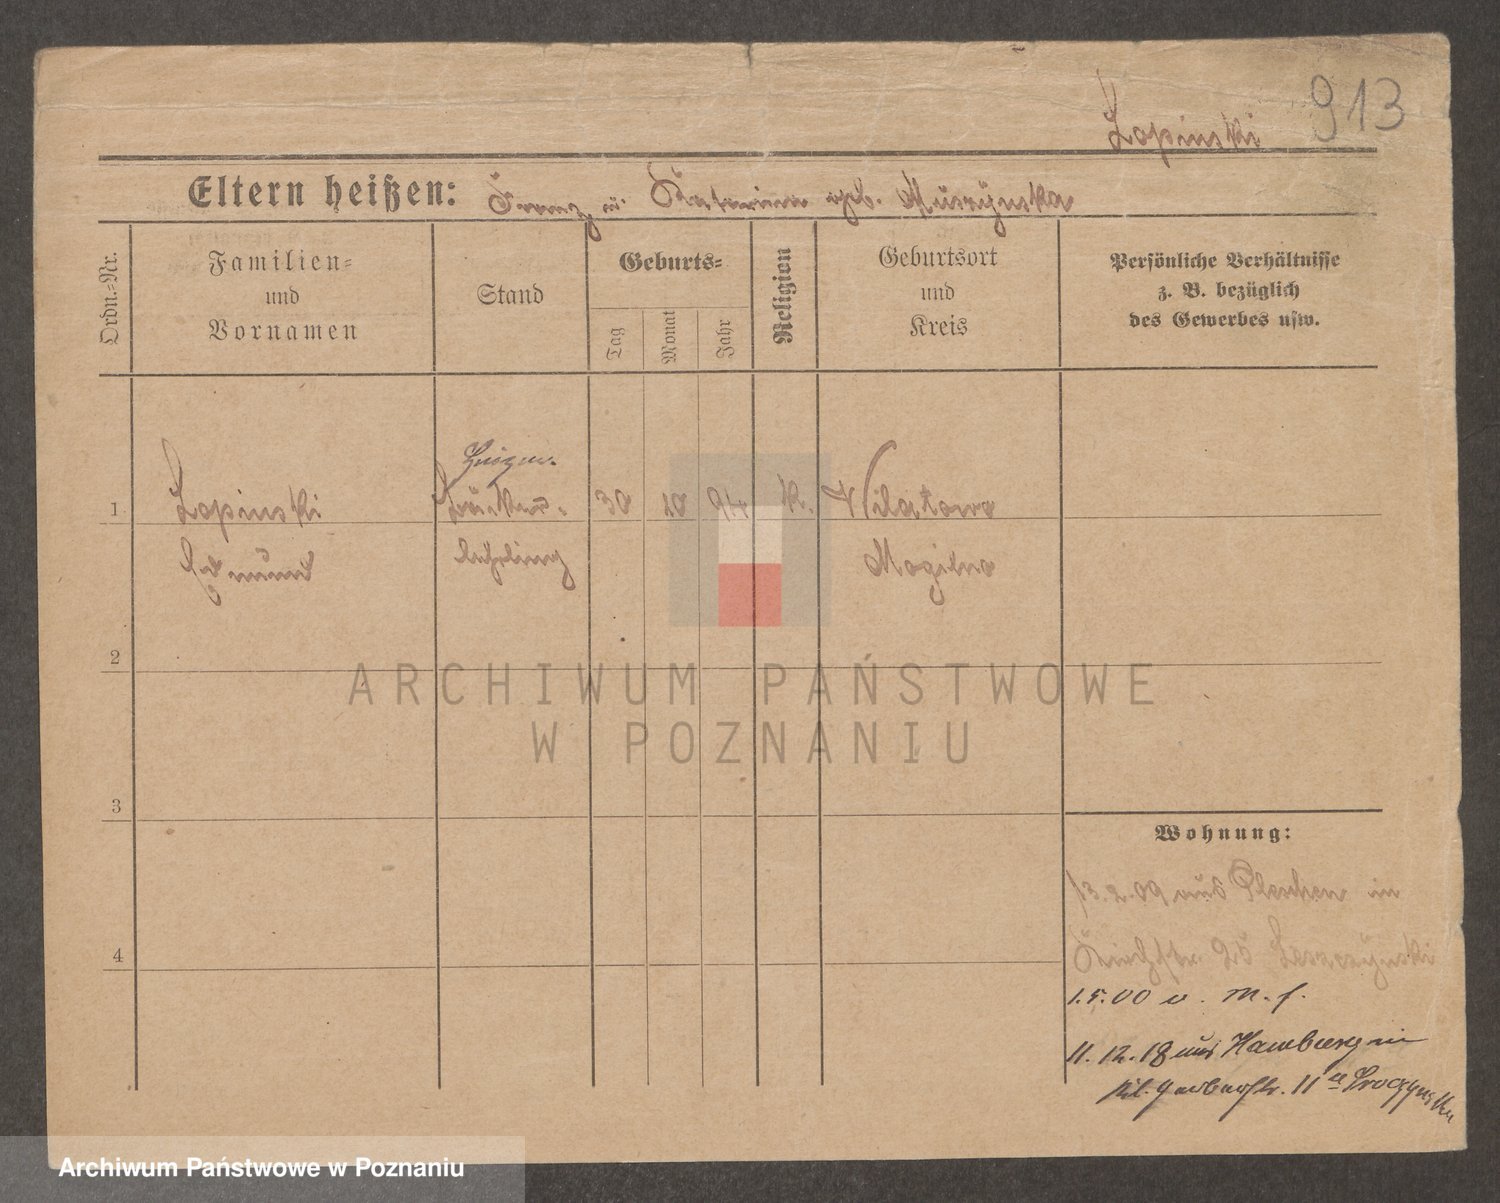 913
Lopinski
Eltern heißen: Franz u. Katarina geb. Muszynska
Ordn.-Nr.
Familien-
und
Vornamen
Stand
Geburts-
Tag
Monat
Jahr
Religion
Geburtsort
und
Kreis
Persönliche Verhältnisse
z. B. bezüglich
des Gewerbes usw.
1
Lopinski
Edmund
lehrling
30
10
94
k.
Wilatowo
Mogilno
2
3
4
Wohnung:
13.2.09 aus Pleschen in
Kirchstr. 25 Leszczynski
11.12.18 aus Hamburg in
Kl. Gerberstr. 11
ARCHIWUM PAŃSTWOWE
W POZNANIU
Archiwum Państwowe w Poznaniu